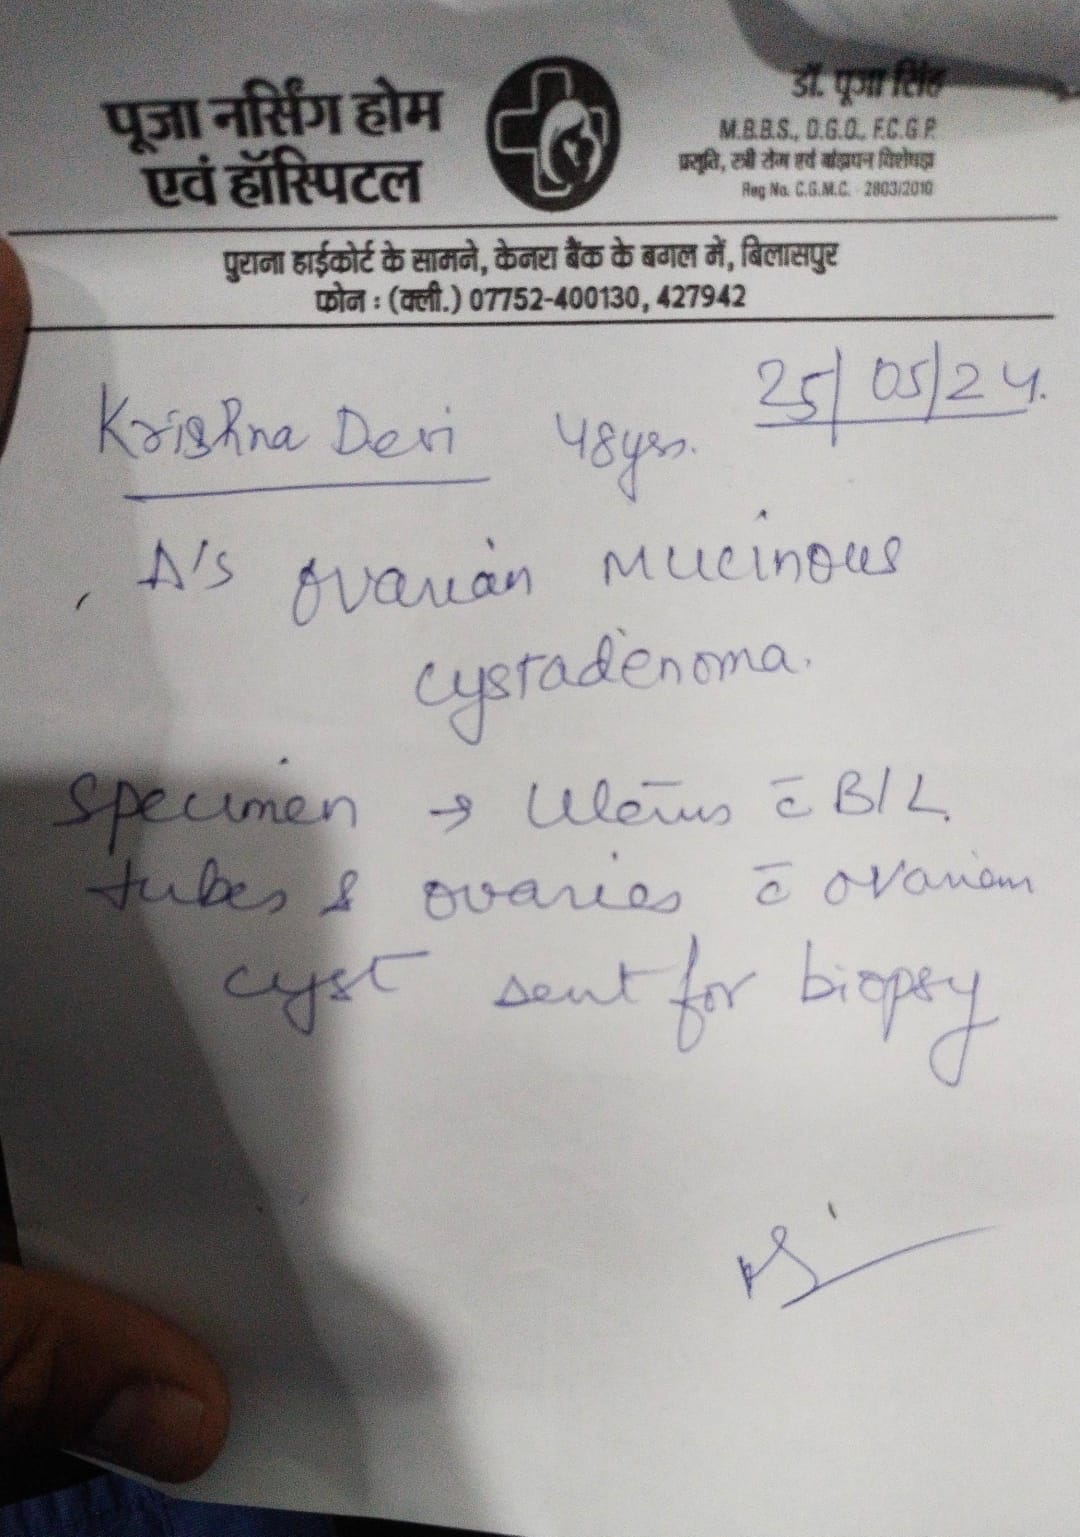 पूजा नर्सिंग होम
एवं हॉस्पिटल
डॉ. पूजा सिंह
M.B.B.S., D.G.O., F.C.G.P.
प्रसूति, स्त्री रोग एवं बांझपन विशेषज्ञ
Reg No. C.G.M.C. - 2803/2010
पुराना हाईकोर्ट के सामने, केनरा बैंक के बगल में, बिलासपुर
फोन : (क्ली.) 07752-400130, 427942
25/05/24.
Krishna Devi 48yrs.
Δ's ovarian Mucinous
cystadenoma.
Specimen → Uterus c̄ B/L
tubes & ovaries c̄ ovarian
cyst sent for biopsy